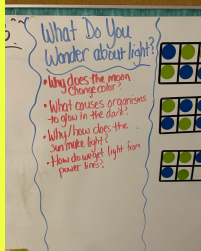 What Do You
Wonder about light?
• Why does the moon
change color?
• What causes organisms
to glow in the dark?
• Why/how does the
sun make light?
• How do we get light from
power lines?